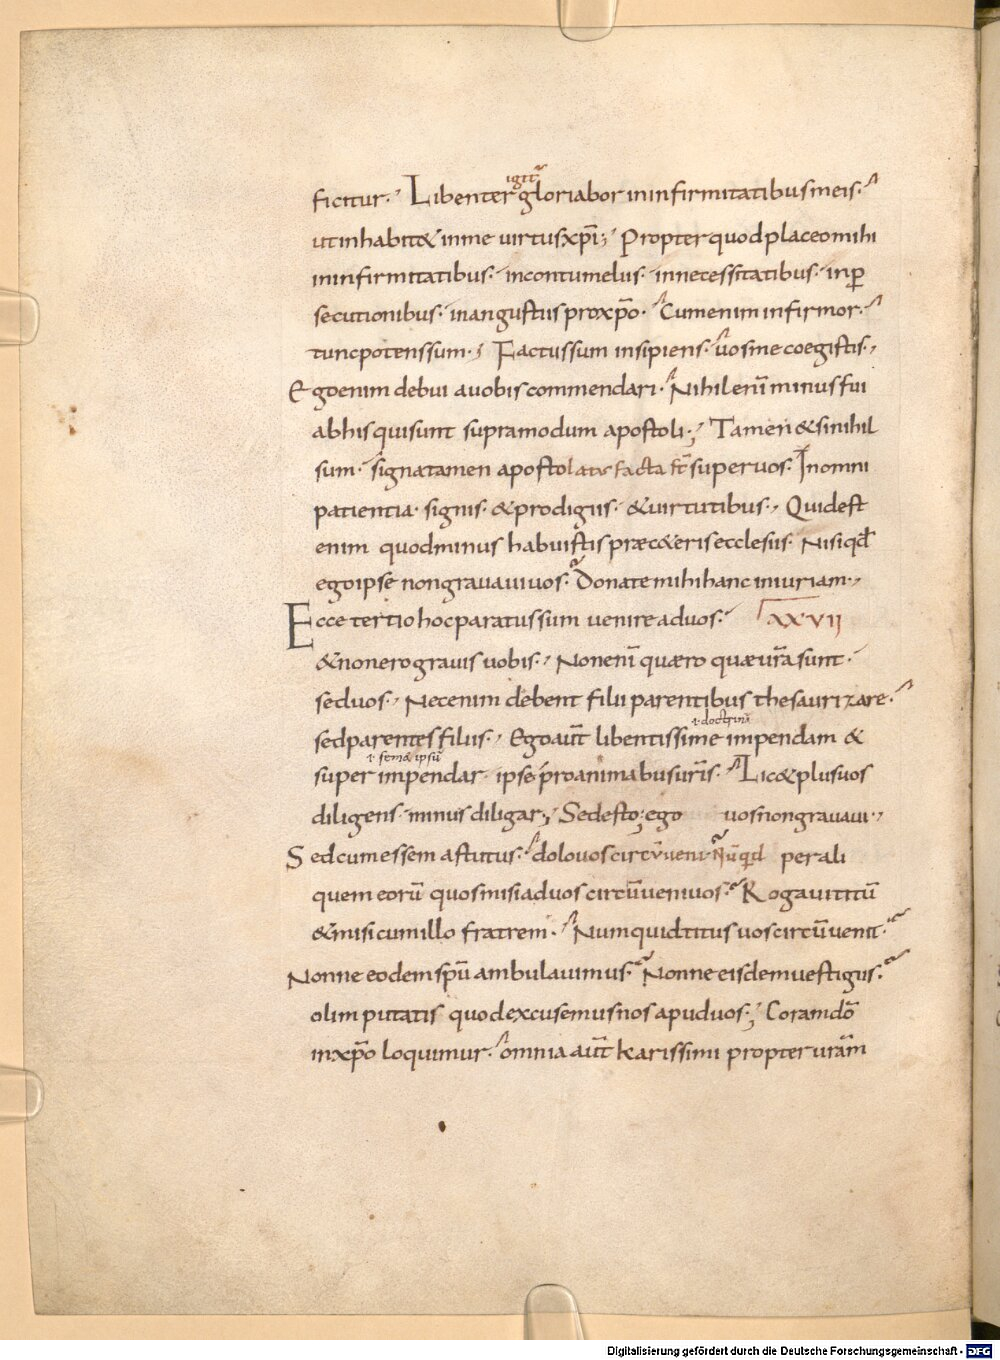 igit᷑
ficitur · Libenter gloriabor ininfirmitatibusmeis ·
utinhabit& inme uirtusxp̄i ; Propterquodplaceomihi
ininfirmitatibus · incontumeliis · innecessitatibus · inꝑ
secutionibus · inangustiisproxp̄o · Cumeniminfirmor ·
tuncpotenssum · ; Factussum insipiens · uosmecoegistis ·
Egoenim debui auobiscommendari · Nihilenī minusfui
abhisquisunt supramodum apostoli ; Tamen&sinihil
sum · signatamen apostolatus facta st̄ superuos · Inomni
patientia · signis · &prodigiis · &uirtutibus · Quidest
enim quodminus habuistispræc&erisecclesiis · Nisiqđ
egoipse nongrauauiuos · Donatemihihanc iniuriam ·
Ecce tertiohocparatussum uenireaduos · xxvii
&nonerograuis uobis · Nonenī quæro quæur̄asunt ·
seduos · Necenim debent filii parentibus thesaurizare ·
.i. doctrinā
sedparentesfiliis · Egoaūt libentissime impendam &
.i. sem& ipsū
super impendar · ipse proanimabusur̄is · Lic&plusuos
diligens · minus diligar ; Sedesto · ego uosnongrauaui ·
Sedcumessem astutus · dolouoscircūueni · Nūqđ perali
quem eorū quosmisiaduos circūueniuos · Rogauititū
&misicumillo fratrem · Numquidtitus uoscircūuenit ·
Nonne eodemspū ambulauimus · Nonne eisdemuestigiis ·
olim putatis quodexcusemusnos apuduos ; Coramdō
inxp̄o loquimur · omnia aūt karissimi propterur̄am
Digitalisierung gefördert durch die Deutsche Forschungsgemeinschaft - DFG